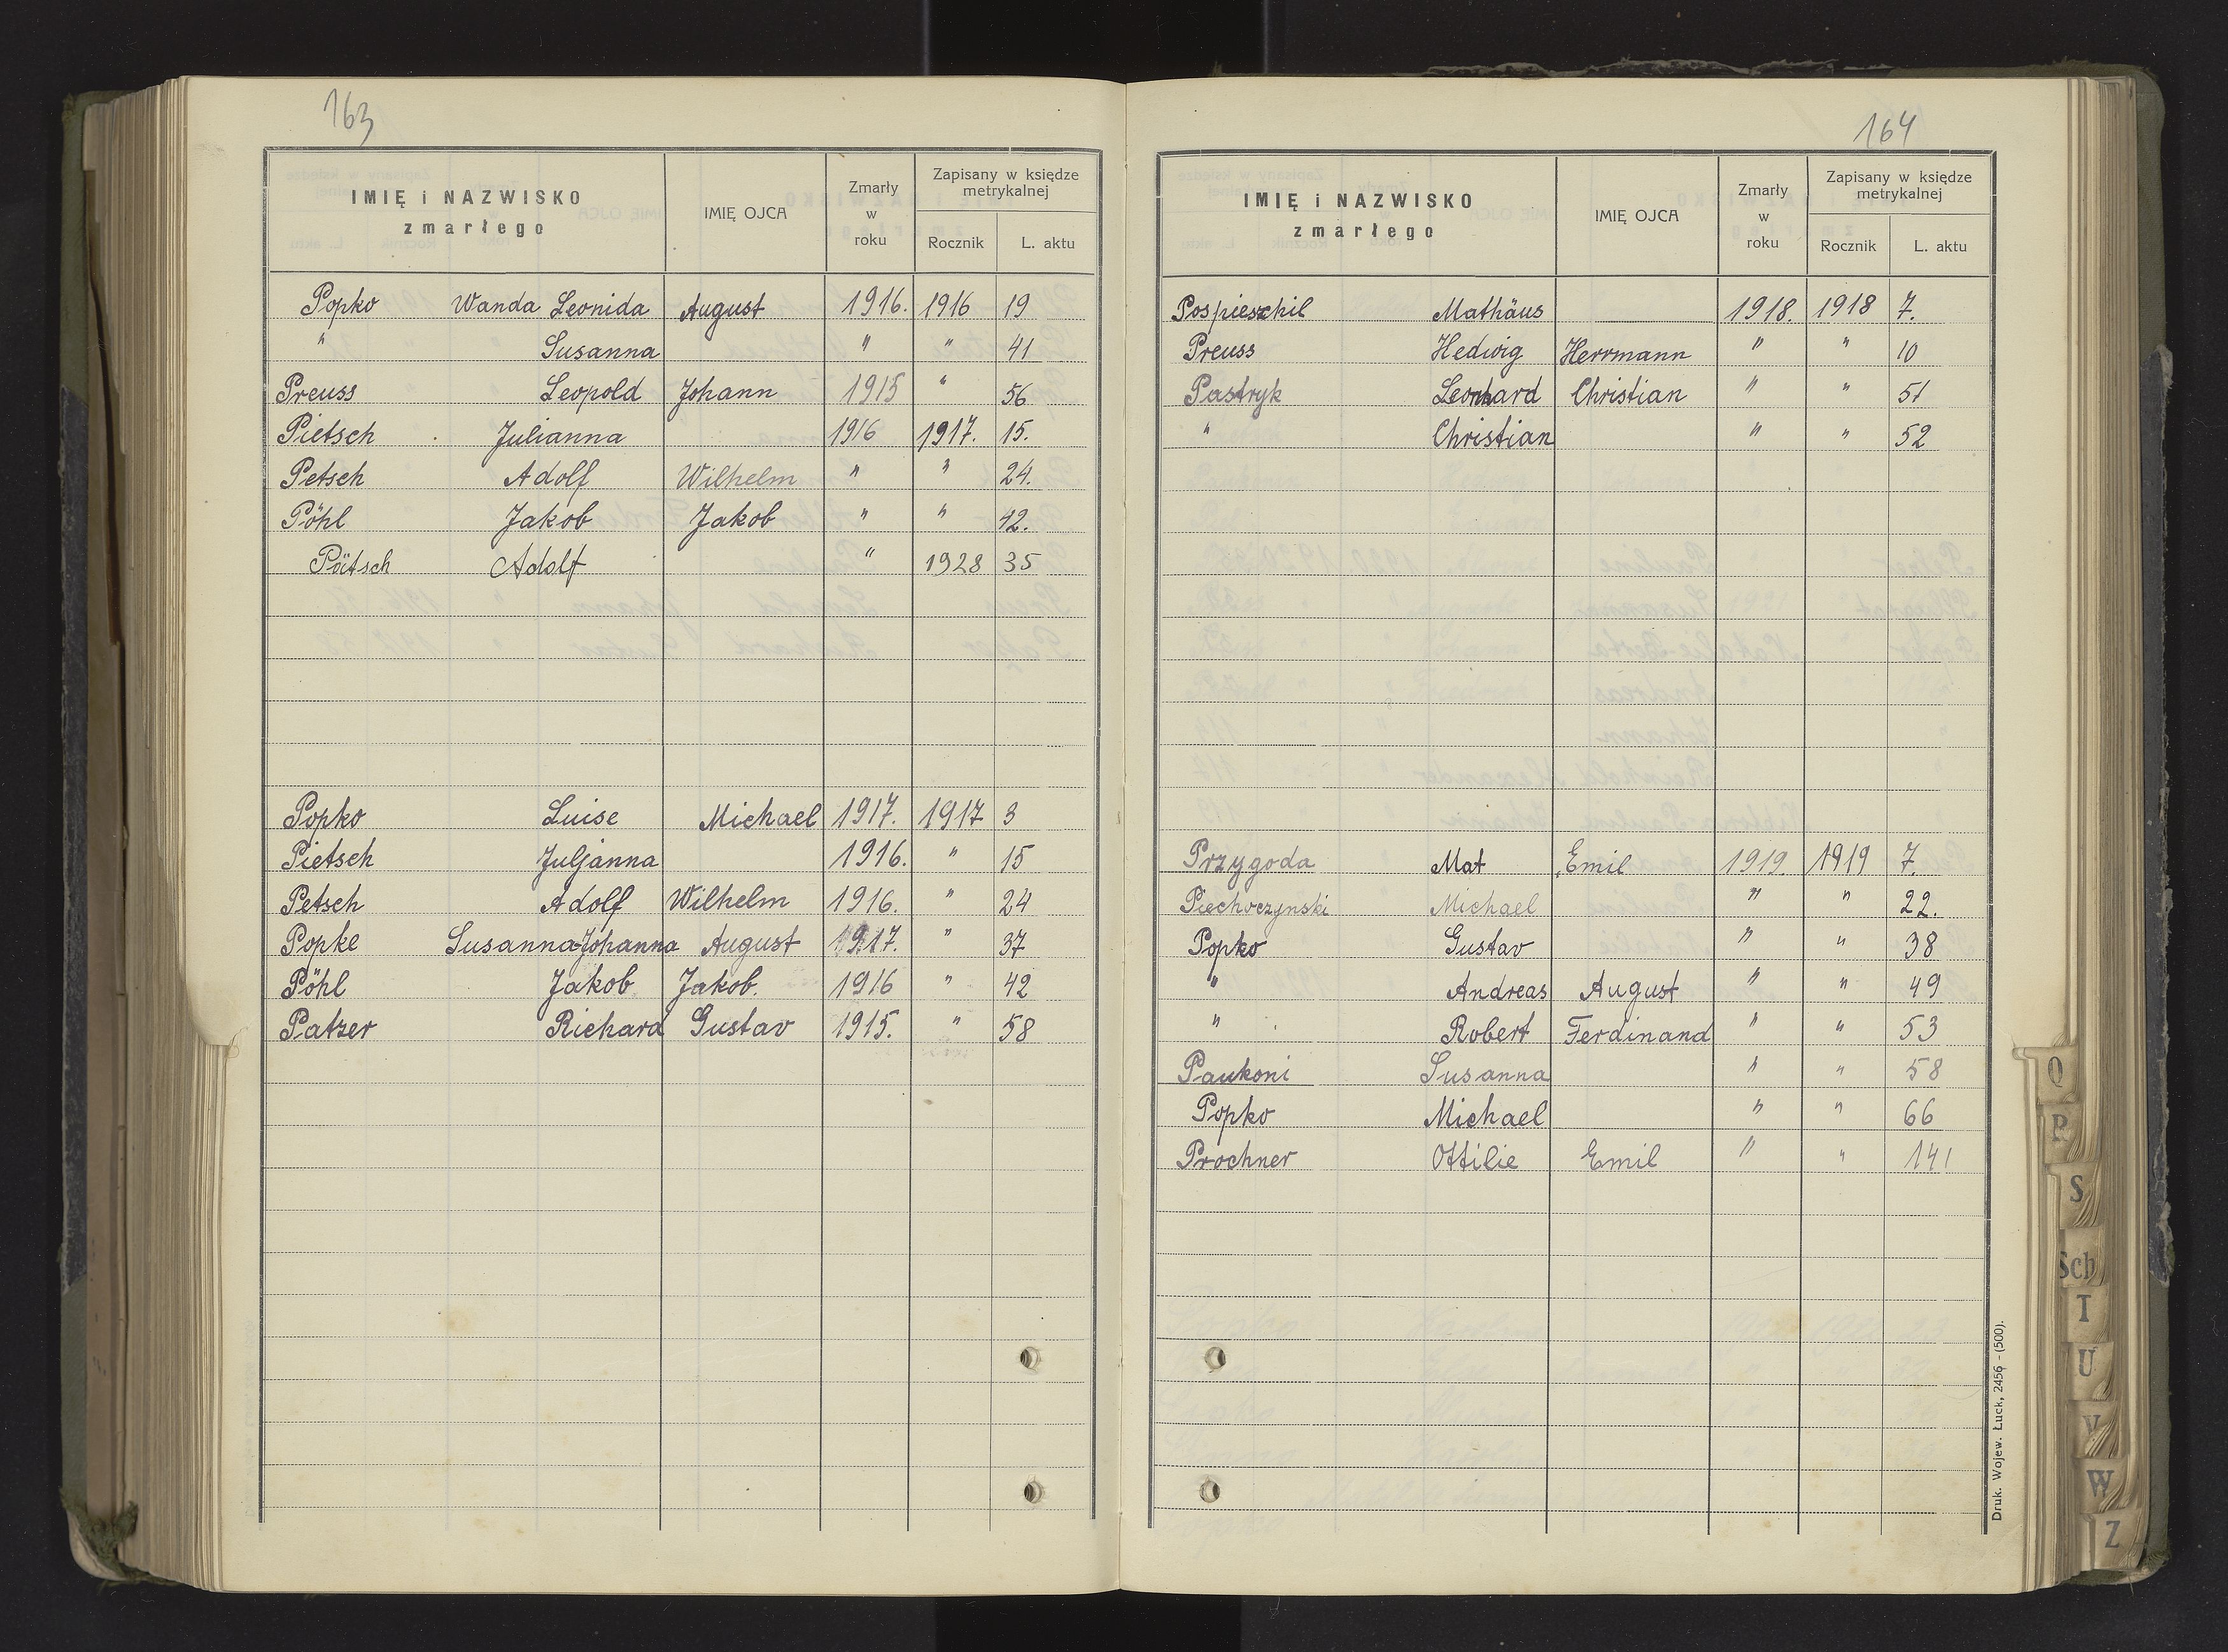 163
IMIĘ i NAZWISKO zmarłego IMIĘ OJCA Zmarły w roku Zapisany w księdze metrykalnej Rocznik L. aktu
Popko Wanda Leonida August 1916. 1916 19
" Susanna " " 41
Preuss Leopold Johann 1915 " 56
Pietsch Julianna 1916 1917. 15.
Petsch Adolf Wilhelm " " 24.
Pöhl Jakob Jakob " " 42.
Pötsch Adolf " 1928 35
Popko Luise Michael 1917. 1917 3
Pietsch Juljanna 1916. " 15
Petsch Adolf Wilhelm 1916. " 24
Popke Susanna-Johanna August 1917. " 37
Pöhl Jakob Jakob. 1916 " 42
Patzer Richard Gustav 1915. " 58
164
IMIĘ i NAZWISKO zmarłego IMIĘ OJCA Zmarły w roku Zapisany w księdze metrykalnej Rocznik L. aktu
Pospieschil Mathäus 1918. 1918 7.
Preuss Hedwig Herrmann " " 10
Pastryk Leonhard Christian " " 51
" Christian " " 52
Przygoda Mat Emil 1919. 1919 7.
Piechoczynski Michael " " 22.
Popko Gustav " " 38
" Andreas August " " 49
" Robert Ferdinand " " 53
Paukoni Susanna " " 58
Popko Michael " " 66
Prochner Ottilie Emil " " 141
Druk. Wojew. Łuck, 2456 - (500).
Q
R
S
Sch
T
U
V
W
Z